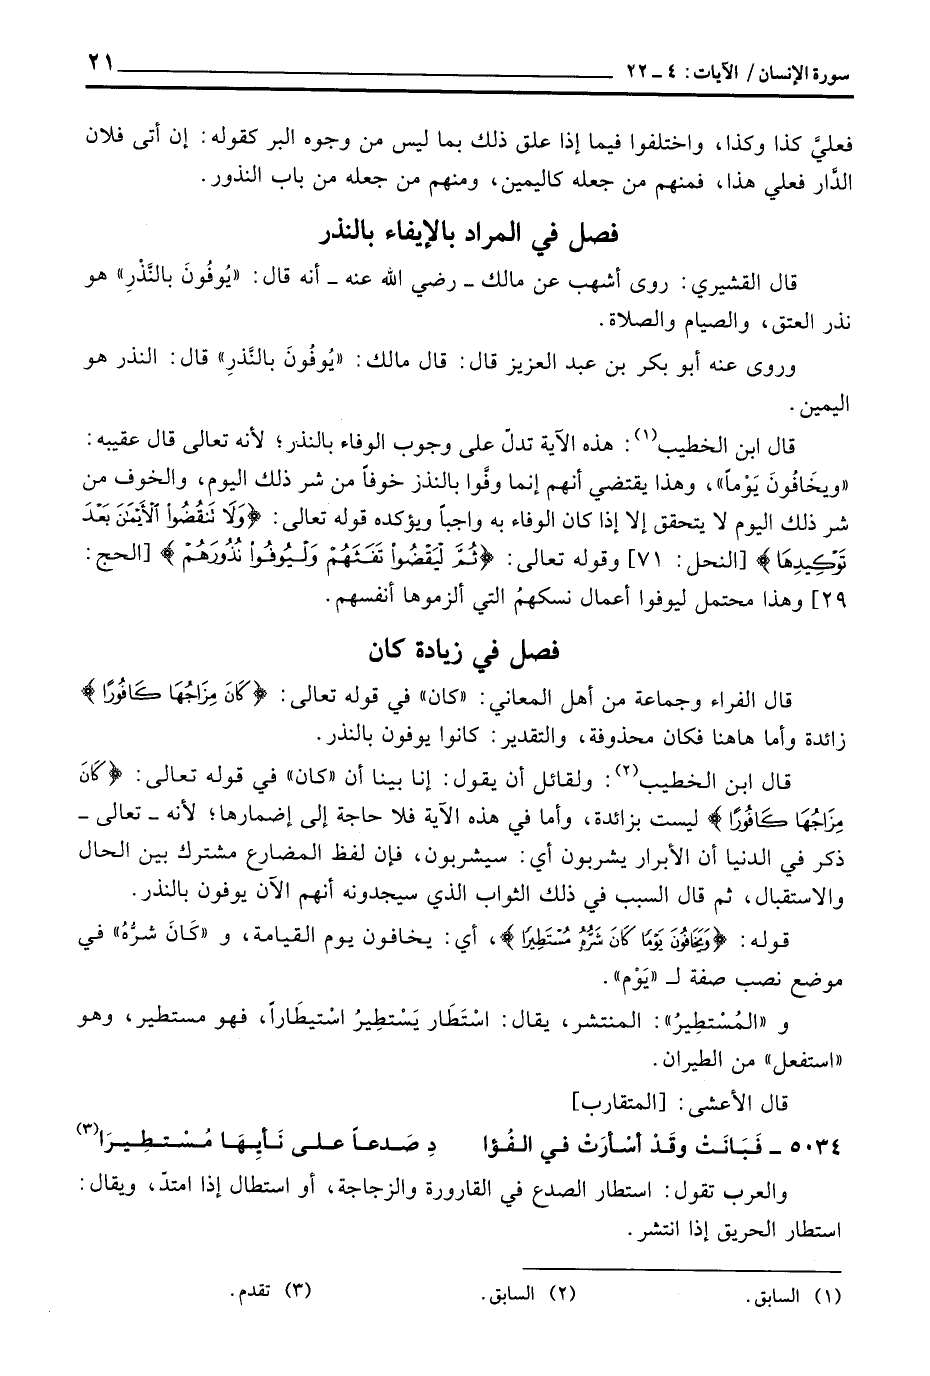 سورة الإنسان/ الآيات: ٤ ـ ٢٢ ٢١
فعليَّ كذا وكذا، واختلفوا فيما إذا علق ذلك بما ليس من وجوه البر كقوله: إن أتى فلان
الدَّار فعلي هذا، فمنهم من جعله كاليمين، ومنهم من جعله من باب النذور.
فصل في المراد بالإيفاء بالنذر
قال القشيري: روى أشهب عن مالك ـ رضي الله عنه ـ أنه قال: «يُوفُونَ بالنَّذْرِ» هو
نذر العتق، والصيام والصلاة.
وروى عنه أبو بكر بن عبد العزيز قال: قال مالك: «يُوفُونَ بالنَّذرِ» قال: النذر هو
اليمين.
قال ابن الخطيب(١): هذه الآية تدلّ على وجوب الوفاء بالنذر؛ لأنه تعالى قال عقيبه:
«ويخَافُونَ يَوْماً»، وهذا يقتضي أنهم إنما وفَّوا بالنذز خوفاً من شر ذلك اليوم، والخوف من
شر ذلك اليوم لا يتحقق إلا إذا كان الوفاء به واجباً ويؤكده قوله تعالى: ﴿وَلَا نَنقُضُواْ ٱلْأَيْمَٰنَ بَعْدَ
تَوْكِيدِهَا﴾ [النحل: ٧١] وقوله تعالى: ﴿ثُمَّ لْيَقْضُواْ تَفَثَهُمْ وَلْيُوفُواْ نُذُورَهُمْ﴾ [الحج:
٢٩] وهذا محتمل ليوفوا أعمال نسكهمُ التي ألزموها أنفسهم.
فصل في زيادة كان
قال الفراء وجماعة من أهل المعاني: «كان» في قوله تعالى: ﴿كَانَ مِزَاجُهَا كَافُورًا﴾
زائدة وأما هاهنا فكان محذوفة، والتقدير: كانوا يوفون بالنذر.
قال ابن الخطيب(٢): ولقائل أن يقول: إنا بينا أن «كان» في قوله تعالى: ﴿كَانَ
مِزَاجُهَا كَافُورًا﴾ ليست بزائدة، وأما في هذه الآية فلا حاجة إلى إضمارها؛ لأنه ـ تعالى ـ
ذكر في الدنيا أن الأبرار يشربون أي: سيشربون، فإن لفظ المضارع مشترك بين الحال
والاستقبال، ثم قال السبب في ذلك الثواب الذي سيجدونه أنهم الآن يوفون بالنذر.
قوله: ﴿وَيَخَافُونَ يَوْمًا كَانَ شَرُّهُۥ مُسْتَطِيرًا﴾، أي: يخافون يوم القيامة، و «كَانَ شرُّهُ» في
موضع نصب صفة لـ «يَوْم».
و «المُسْتطِيرُ»: المنتشر، يقال: اسْتَطَار يَسْتطِيرُ اسْتيطَاراً، فهو مستطير، وهو
«استفعل» من الطيران.
قال الأعشى: [المتقارب]
٥٠٣٤ ـ فَبَانَتْ وقَدْ أسْأرَتْ في الفُؤا دِ صَدعاً على نَأيِهَا مُسْتطِيرَا(٣)
والعرب تقول: استطار الصدع في القارورة والزجاجة، أو استطال إذا امتدّ، ويقال:
استطار الحريق إذا انتشر.
(١) السابق. (٢) السابق. (٣) تقدم.